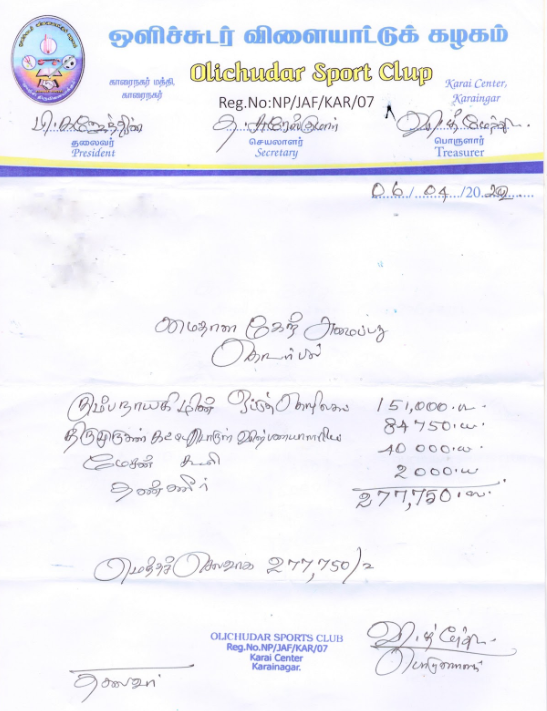 ஒளிச்சுடர் விளையாட்டுக் கழகம்
Olichudar Sport Clup
காரைநகர் மத்தி,
காரைநகர்
Karai Center,
Karaingar
Reg.No:NP/JAF/KAR/07
தலைவர்
President
செயலாளர்
Secretary
பொருளார்
Treasurer
06/04/20
மைதான கேற் அமைப்பு
தொடர்பில்
151,000
84750
மேசன் கூலி 40000
தண்ணீர் 2000
277,750
மொத்தச் செலவாக 277,750/=
OLICHUDAR SPORTS CLUB
Reg.No.NP/JAF/KAR/07
Karai Center
Karainagar.
பொருளாளர்
தலைவர்